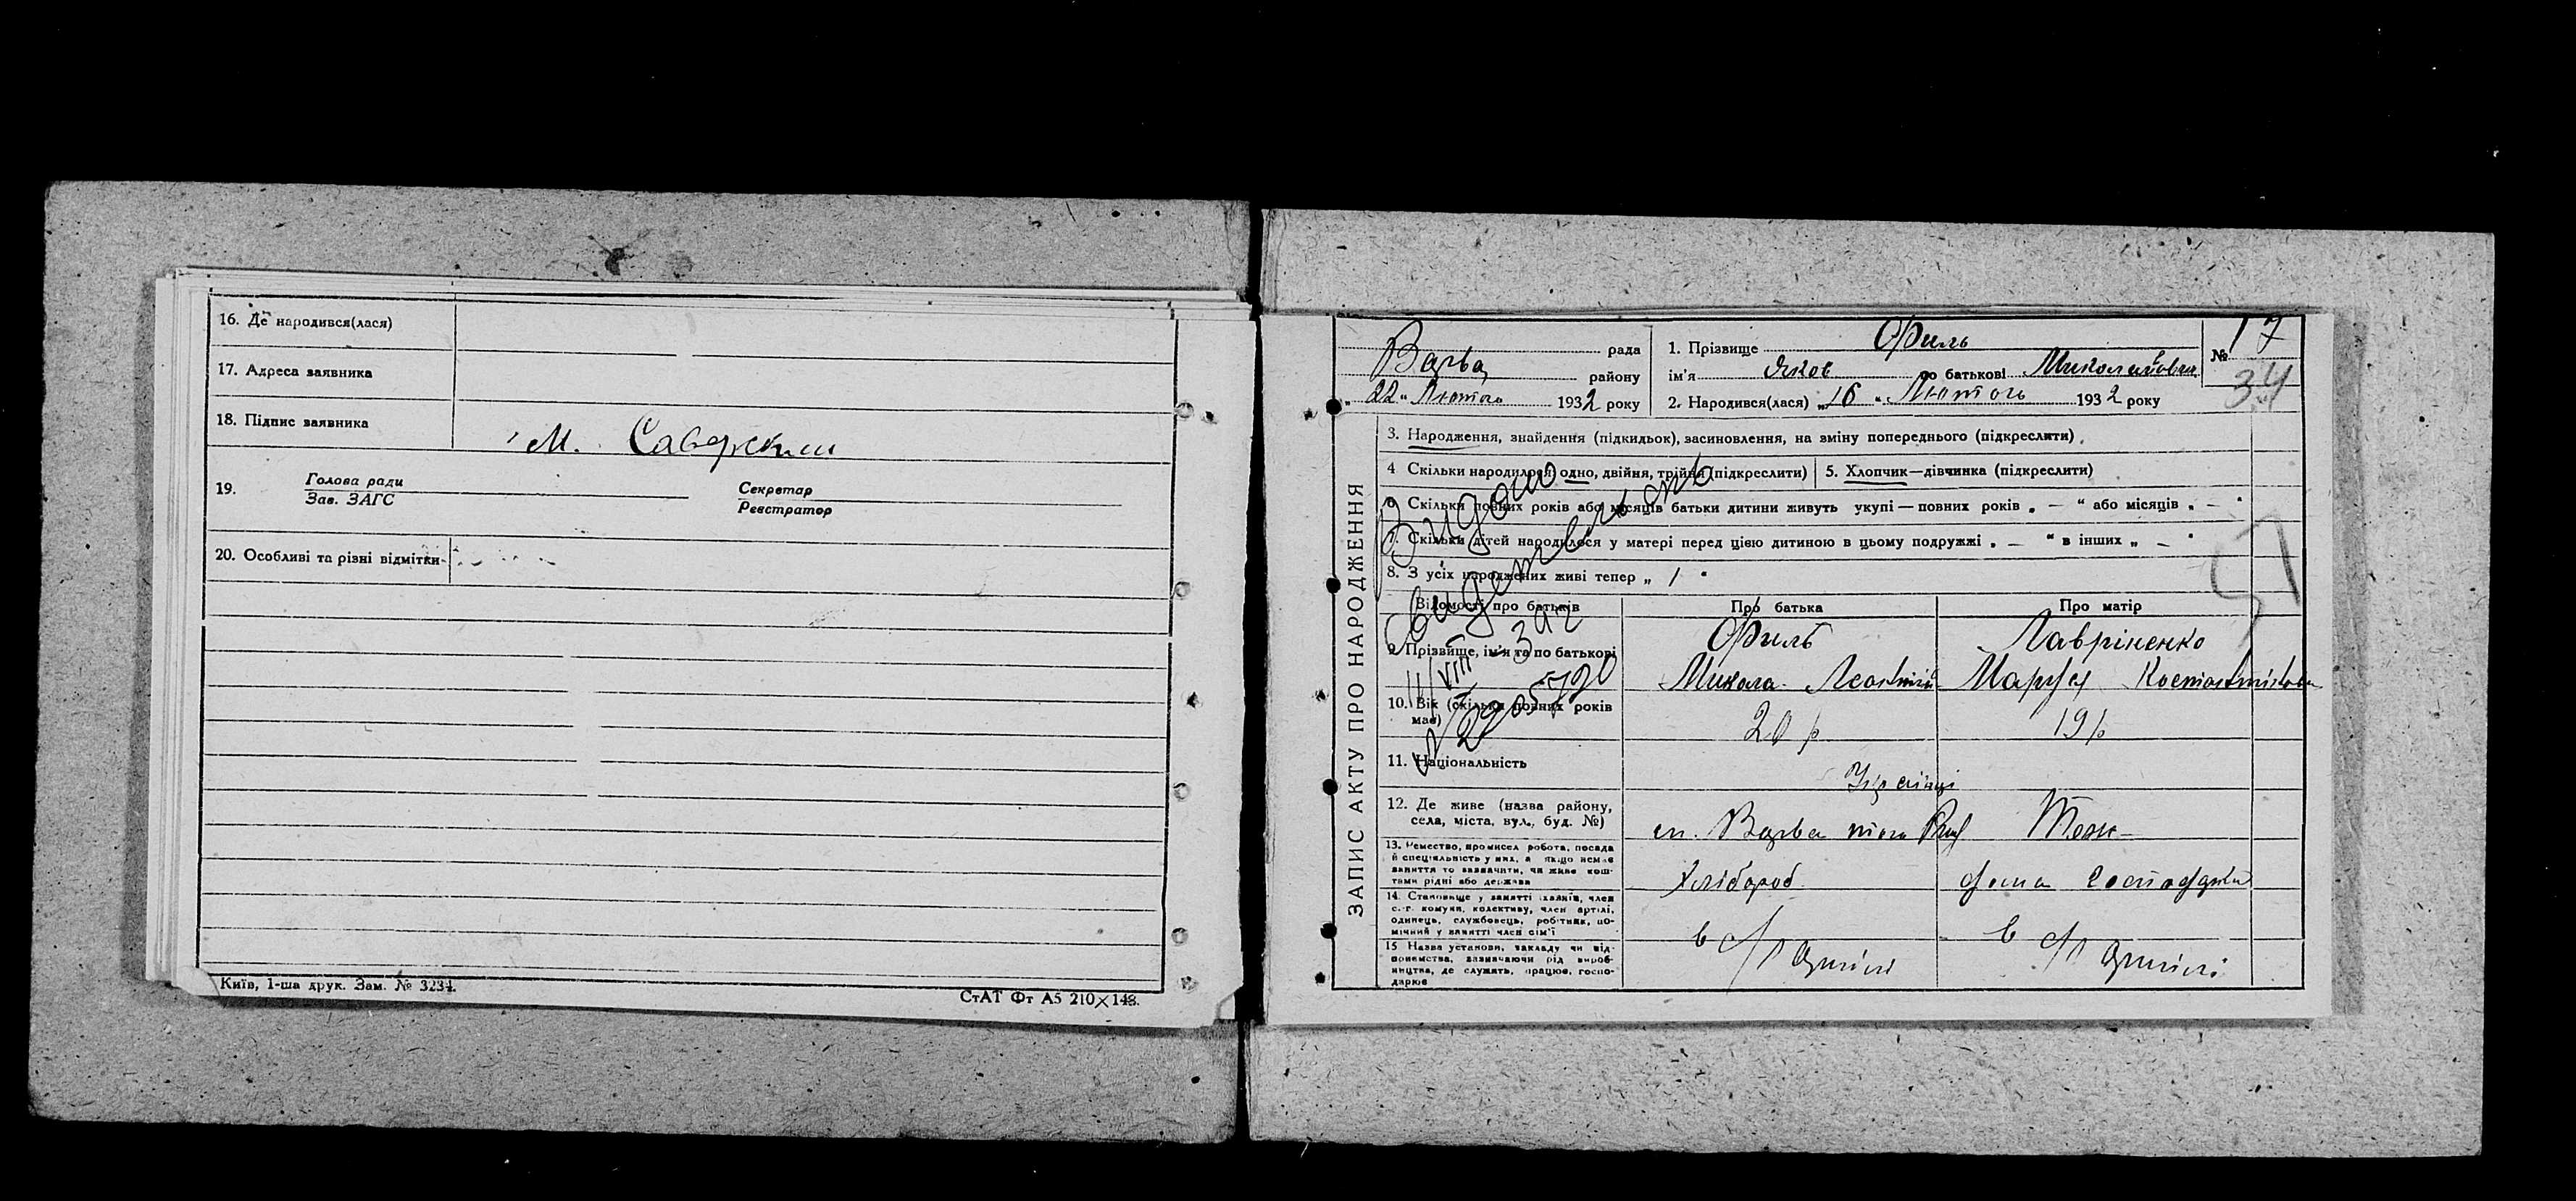 16. Де народився(лася)
17. Адреса заявника
18. Підпис заявника
М.
19. Голова ради
Зав. ЗАГС
Секретар
Реєстратор
20. Особливі та різні відмітки
Київ, 1-ша друк. Зам. № 3234.
СтАТ Фт А5 210×148.
ЗАПИС АКТУ ПРО НАРОДЖЕННЯ
рада
Варва району
„ 22 “ Лютого 1932 року
1. Прізвище Филь
ім'я Яков по батькові Миколайович
2. Народився(лася) „ 16 “ Лютого 1932 року
№ 17
34
3. Народження, знайдення (підкидьок), засиновлення, на зміну попереднього (підкреслити)
4 Скільки народилося одно, двійня, трійня (підкреслити)
5. Хлопчик—дівчинка (підкреслити)
6. Скільки повних років або місяців батьки дитини живуть укупі — повних років „ — “ або місяців „ — “
7. Скільки дітей народилося у матері перед цією дитиною в цьому подружжі „ — “ в інших „ — “
8. З усіх народжених живі тепер „ 1 “
Відомості про батьків
Про батька
Про матір
9. Прізвище, ім'я та по батькові
Филь
Микола
Лавріненко
10. Вік (скільки повних років має)
20 р
19 р
11. Національність
Українці
12. Де живе (назва району, села, міста, вул., буд. №)
м. Варва
Теж
13. Ремество, промисел робота, посада й спеціяльність у них, а якщо немає заняття то зазначити, чи живе коштами рідні або держава
Хлібороб
14. Становище у занятті хазяїн, член с.-г. комуни, колективу, член артілі, одинець, службовець, робітник, помічний у занятті член сім'ї
15 Назва установи, закладу чи підприємства, зазначаючи рід виробництва, де служить, працює, господарює
в с/г артілі
в с/г артілі
Видано
свидетельство